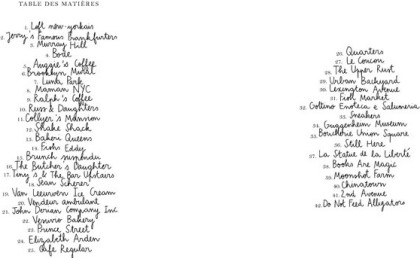 TABLE DES MATIÈRES
1. Loft new-yorkais
2. Jerry's Famous Frankfurters
3. Murray Hill
4. Bode
5. Auggie's Coffee
6. Brooklyn Mural
7. Luna Park
8. Maman NYC
9. Ralph's Coffee
10. Russ & Daughters
11. Collyer's Mansion
12. Shake Shack
13. Bakeri Queens
14. Fishs Eddy
15. Brunch suspendu
16. The Butcher's Daughter
17. Tiny's & The Bar Upstairs
18. Sean Scherer
19. Van Leeuwen Ice Cream
20. Vendeur ambulant
21. John Derian Company Inc
22. Vesuvio Bakery
23. Prince Street
24. Elizabeth Arden
25. Cafe Regular
26. Quarters
27. Le Coucou
28. The Upper Rust
29. Urban Backyard
30. Lexington Avenue
31. Fish Market
32. Ostino Enoteca e Salumeria
33. Sneakers
34. Guggenheim Museum
35. Boucherie Union Square
36. Still Here
37. La Statue de la Liberté
38. Books Are Magic
39. Moonshot Farm
40. Chinatown
41. 2nd Avenue
42. Do Not Feed Alligators